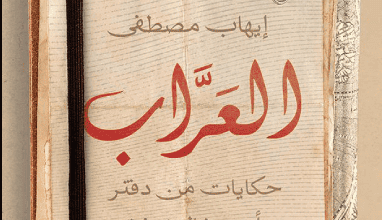 إيهاب مصطفى
العَرَّاب
حكايات من دفتر